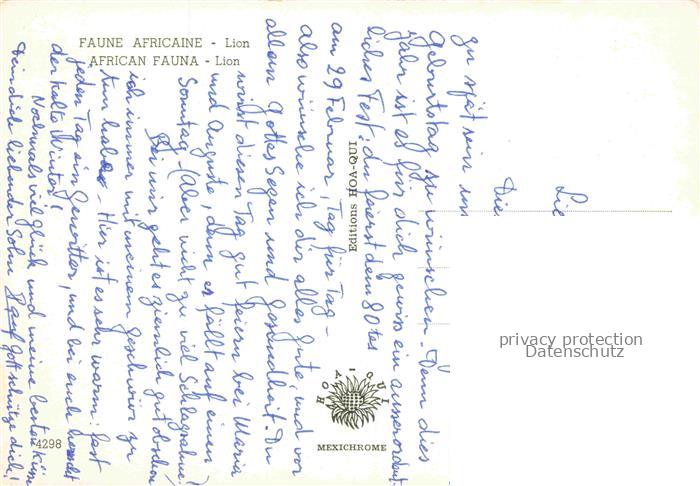 FAUNE AFRICAINE - Lion
AFRICAN FAUNA - Lion
Editions HOA-QUI
HOA-QUI
MEXICHROME
4298
privacy protection
Datenschutz
Lie
Die
zu spät sein um
Geburtstag zu wünschen. Denn dies
Jahr ist es für dich gewiss ein ausserordent-
liches Fest: du feierst dein 80tes
am 29 Februar, Tag für Tag -
also wünsche ich dir alles Gute, und vor
allem Gottes Segen und Gesundheit. Du
wirst diesen Tag gut feiern bei Maria
und Auguste, denn es fällt auf einen
Sonntag - (Aber nicht zu viel Schlagsahne!
Bei mir geht es ziemlich gut obschon
ich immer mit meinem Geschwür zu
tun habe - Hier ist es sehr warm: fast
jeden Tag ein Gewitter, und bei euch herrscht
der kalte Winter!
Nochmals viel Glück und meine besten Küsse
Dein dich liebender Sohn Gott schütze dich!